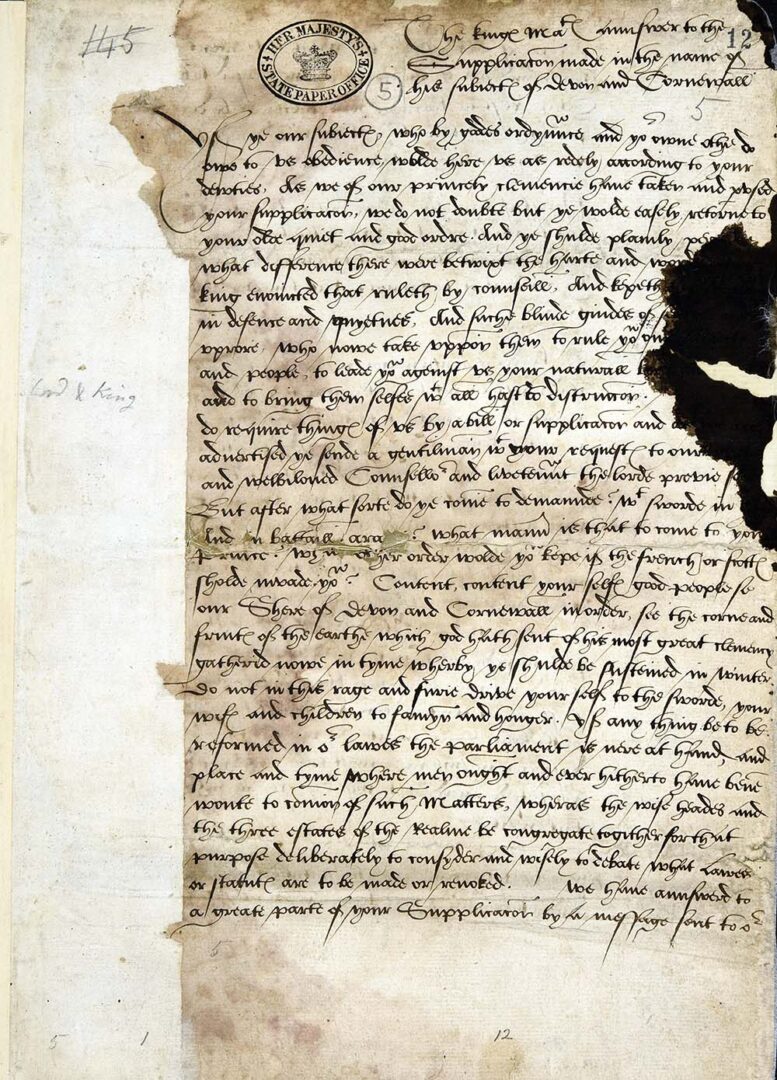 #45
HER MAJESTY'S STATE PAPER OFFICE
12
5
5
The kinges Matᵉ aunswer to the
Supplicacon made in the name of
his subiectes of Devon and Cornewall
Yf ye our subiectes, who by goddes ordynunce and yoʳ owne othe do
owe to vs obedience, wolde here vs as redely according to your
dewties, As we of our princely clemencie haue taken and pvsed
your supplicacon, we do not doubte but ye wolde easely retorne to
your olde quiet and good ordre. And ye shulde plainly
what difference there were betwixt the harte and
king enointed that ruleth by counseill, And kepeth
in defence and quyetnes, And suche blinde guides of
vprore, who nowe take vppon them to rule yoᵘ
and people, to leade yoᵘ against vs your naturall
and to bring them selfes wᵗ all hast to distruccon.
do require thinges of vs by a bill or supplicacon and
advertised ye sende a gentilman wᵗ your requestes to our
and welbiloued Counselloʳ and livetennt the lorde previe
But after what sorte do ye come to demaunde? wᵗ sworde in
And in battaill aray? what maner is that to come to your
Prince? other order wolde yoᵘ kepe if the french or scottes
sholde invade yoᵘ? Content, content your selfes good people se
our Shere of Devon and Cornewall in order, see the corne and
frutes of the earthe which god hath sent of his most great clemency
gatherid nowe in tyme wherby ye shulde be susteined in winter.
Do not in this rage and furie drive your selfes to the sworde, your
wifes and children to famyn and honger. Yf any thing be to be
reformed in oʳ lawes the parliament is nere at hand, and
place and tyme where men ought and ever hitherto haue bene
wonte to comon of such Matters, wheras the wise heades and
the three estates of the Realme be congregate togither for that
purpose deliberately to consyder and wisely to debate what lawes
or statutes are to be made or revoked. We haue aunswerd to
a greate parte of your Supplicacon by a message sent to oʳ
lord & king
5
5 1 12